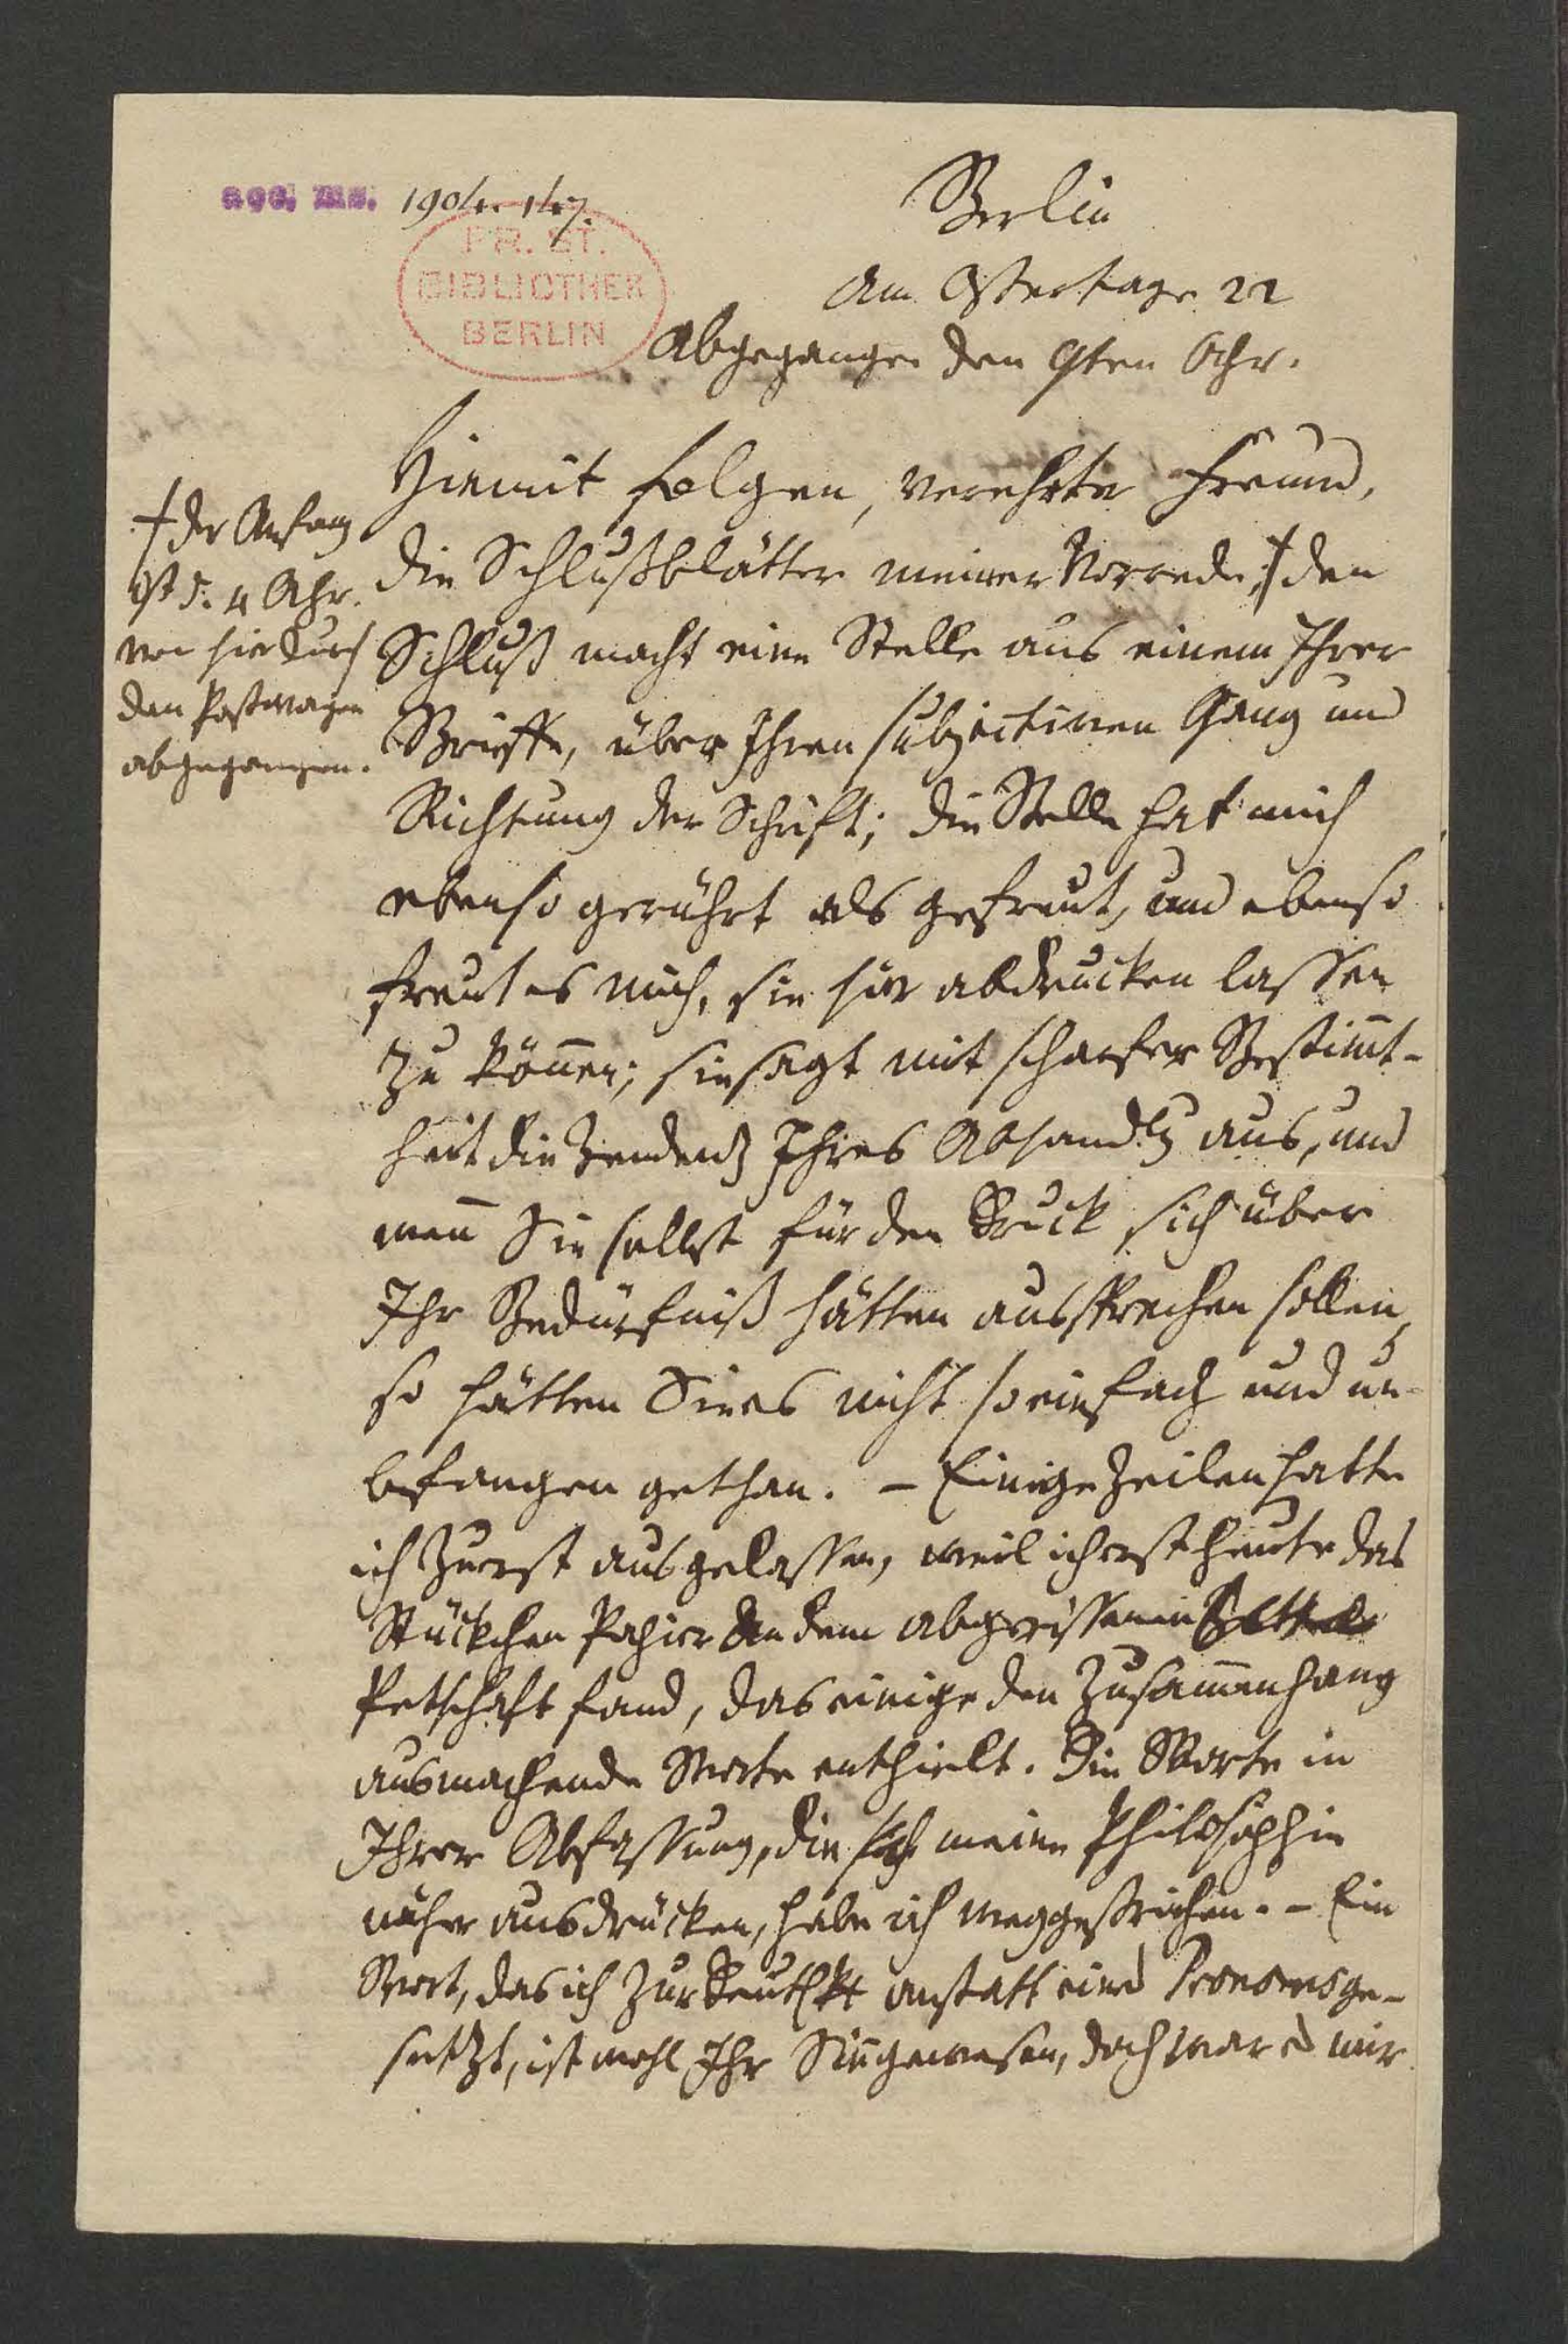 acc. ms. 1904. 147.
PR. ST.
BIBLIOTHEK
BERLIN
Berlin
am Ostertage 22
Abgegangen den 9ten Apr.
Hiemit folgen, verehrter Freund,
die Schlußblätter meiner Vorrede; ƚ den
Schluß macht eine Stelle aus einem Ihrer
Brieffe, über Ihren subjectiven Gang und
Richtung der Schrift; die Stelle hat mich
ebenso gerührt als gefreut, und ebenso
freut es mich, sie hier abdrucken lassen
zu könen; sie sagt mit scharfer Bestimt-
heit die Tendenz Ihres Abhandlg aus, und
wenn Sie selbst für den Druck sich über
Ihr Bedürfniß hätten aussprechen sollen,
so hätten Sie es nicht so einfach und un-
befangen gethan. – Einige Zeilen hatte
ich zuerst ausgelassen, weil ich erst heute das
Stückchen Papier an dem abgerissenen
Petschaft fand, das einige den Zusamenhang
ausmachende Worte enthielt. Die Worte in
Ihrer Abfassung, die sich meine Philosophie
näher ausdrücken, habe ich weggestrichen. – Ein
Wort, das ich zur Deutlkt anstatt eines Pronomens ge-
setzt, ist wohl Ihr Sinn gewesen, doch war es mir
ƚ der Anfang
ist d. 4 Apr.
von hier durch
den Postwagen
abgegangen.